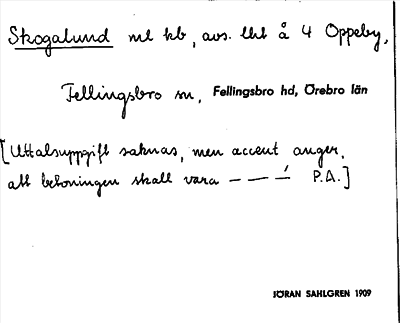 Skogalund ml kb, avs. lht å 4 Oppeby,
Fellingsbro sn, Fellingsbro hd, Örebro län
[Uttalsuppgift saknas, men accent anger,
att betoningen skall vara – – –́ P.A.]
JÖRAN SAHLGREN 1909